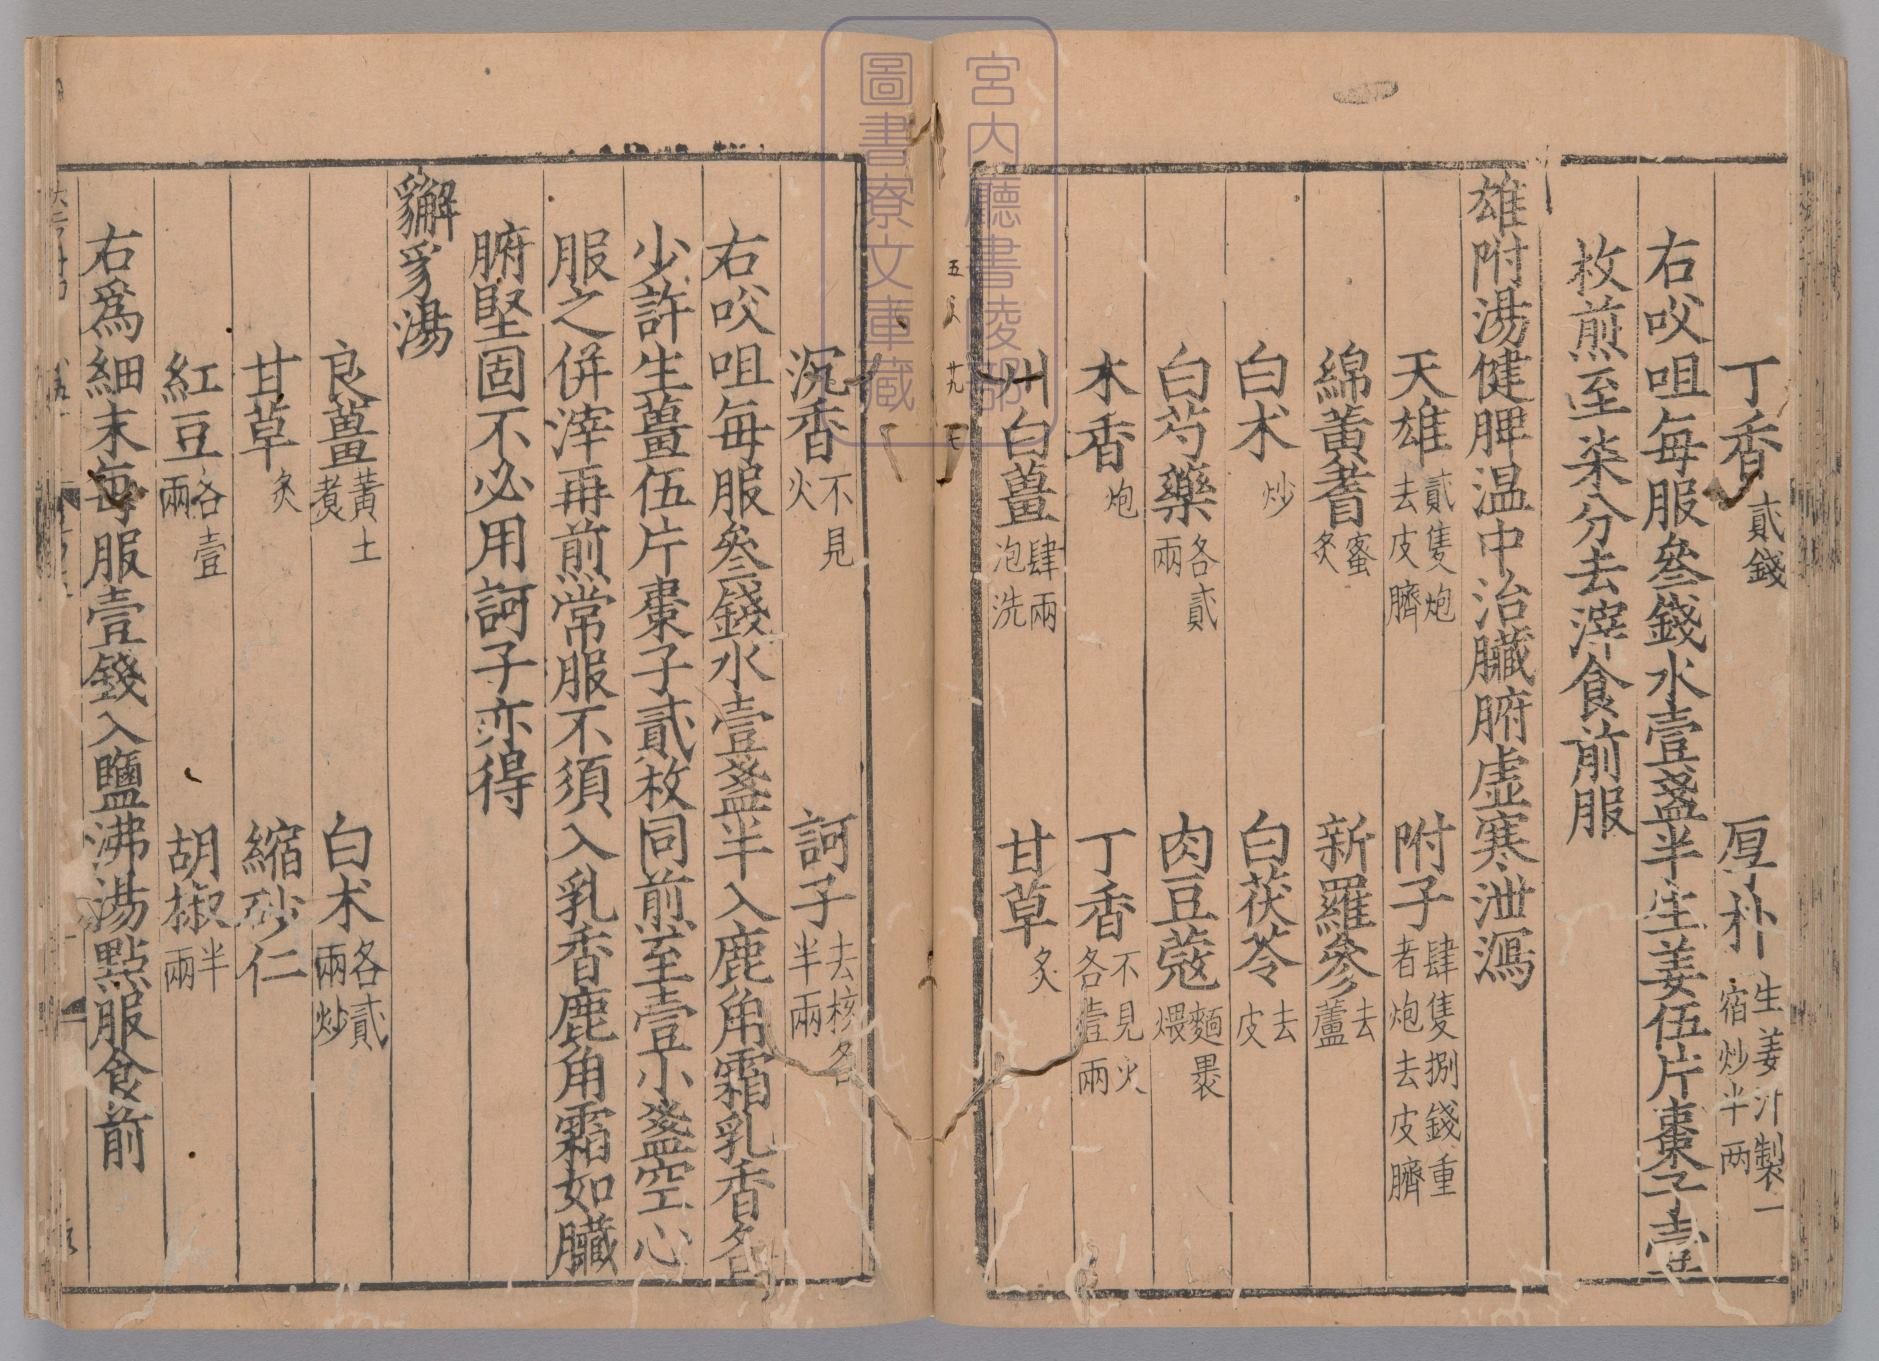 丁香貳錢　厚朴生姜汁製一宿炒半两
右㕮咀每服叄錢水壹盞半生姜伍片棗子壹
枚煎至柒分去滓食前服
雄附湯健脾温中治臟腑虚寒泄瀉
天雄貳隻炮去皮臍　附子肆隻捌錢重者炮去皮臍
綿黃耆蜜炙　新羅參去蘆
白术炒　白茯苓去皮
白芍藥各貳兩　肉豆蔻麵裹煨
木香炮　丁香不見火各壹兩
川白薑肆兩泡洗　甘草炙
沉香不見火　訶子去核各半兩
右㕮咀每服叄錢水壹盞半入鹿角霜乳香各
少許生薑伍片棗子貳枚同煎至壹小盞空心
服之併滓再煎常服不須入乳香鹿角霜如臟
腑堅固不必用訶子亦得
豸湯
良薑黃土煮　白术各貳兩炒
甘草炙　縮砂仁
紅豆各壹兩　胡椒半兩
右爲細末每服壹錢入鹽沸湯點服食前
宮内廳書陵部
圖書寮文庫蔵